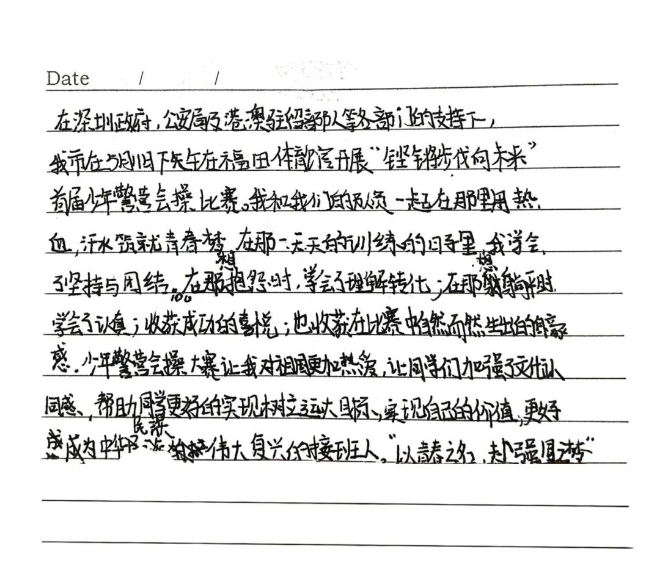 Date / /
在深圳政府,公安局及港澳驻留部队等各部门的支持下,
我市在5月18下午在福田体育馆开展“铿锵步伐向未来”
首届少年警营会操比赛。我和我们的队员一起在那里用热
血,汗水筑就青春梦,在那一天天的训练的日子里,我学会
了坚持与团结。在那想抱怨时,学会了理解转化;在那想躺平时
学会了认真;收获成功的喜悦;也收获在比赛中自然而然生出的自豪
感。少年警营会操大赛让我对祖国更加热爱,让同学们加强了文化认
同感、帮助同学更好的实现树立远大目标、实现自己的价值,更好
成为中华民族伟大复兴的接班人。“以青春之名,赴强国之梦”